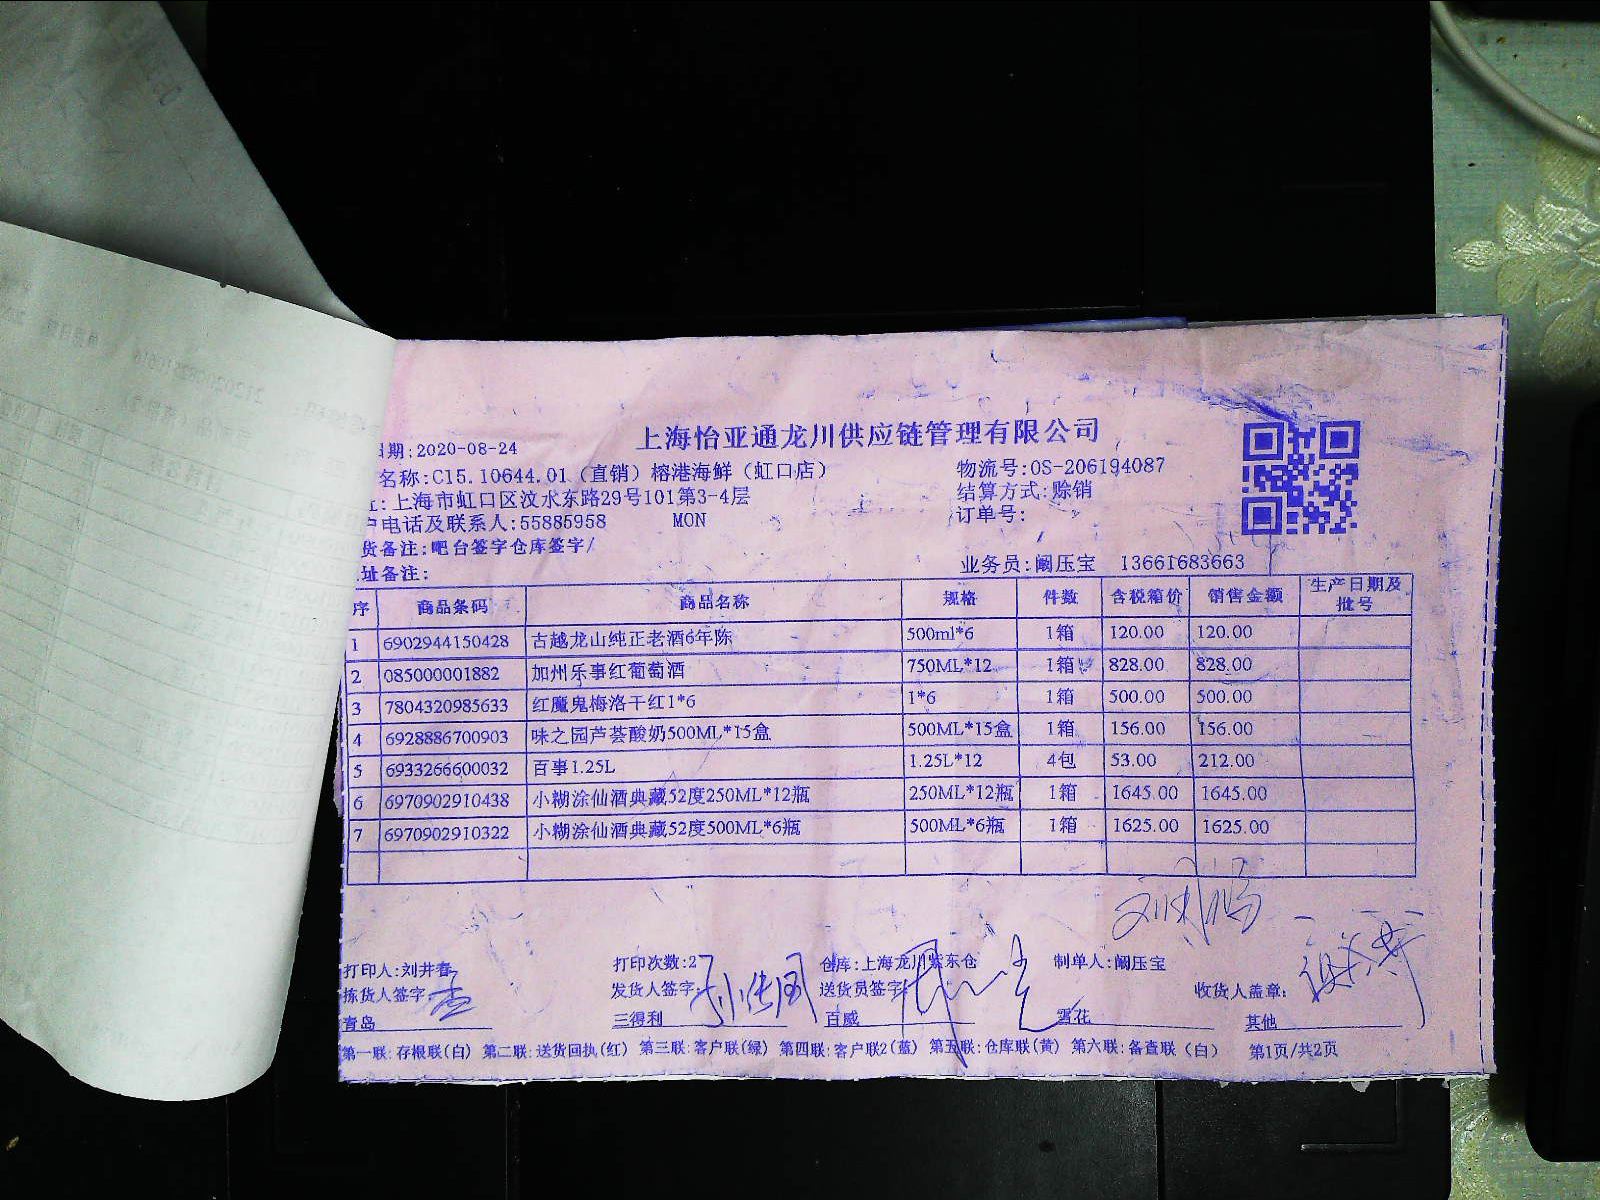 上海怡亚通龙川供应链管理有限公司
日期:2020-08-24
名称:C15.10644.01（直销）榕港海鲜（虹口店）
物流号:OS-206194087
址:上海市虹口区汶水东路29号101第3-4层
结算方式:赊销
户电话及联系人:55885958 MON
订单号:
货备注:吧台签字仓库签字/
址备注:
业务员:阚压宝 13661683663
序 商品条码 商品名称 规格 件数 含税箱价 销售金额 生产日期及批号
1 6902944150428 古越龙山纯正老酒6年陈 500ml*6 1箱 120.00 120.00
2 085000001882 加州乐事红葡萄酒 750ML*12 1箱 828.00 828.00
3 7804320985633 红魔鬼梅洛干红1*6 1*6 1箱 500.00 500.00
4 6928886700903 味之园芦荟酸奶500ML*15盒 500ML*15盒 1箱 156.00 156.00
5 6933266600032 百事1.25L 1.25L*12 4包 53.00 212.00
6 6970902910438 小糊涂仙酒典藏52度250ML*12瓶 250ML*12瓶 1箱 1645.00 1645.00
7 6970902910322 小糊涂仙酒典藏52度500ML*6瓶 500ML*6瓶 1箱 1625.00 1625.00
打印人:刘井春 打印次数:2 仓库:上海龙川紫东仓 制单人:阚压宝
拣货人签字: 发货人签字: 送货员签字: 收货人盖章:
青岛 三得利 百威 雪花 其他
第一联:存根联(白) 第二联:送货回执(红) 第三联:客户联(绿) 第四联:客户联2(蓝) 第五联:仓库联(黄) 第六联:备查联（白） 第1页/共2页